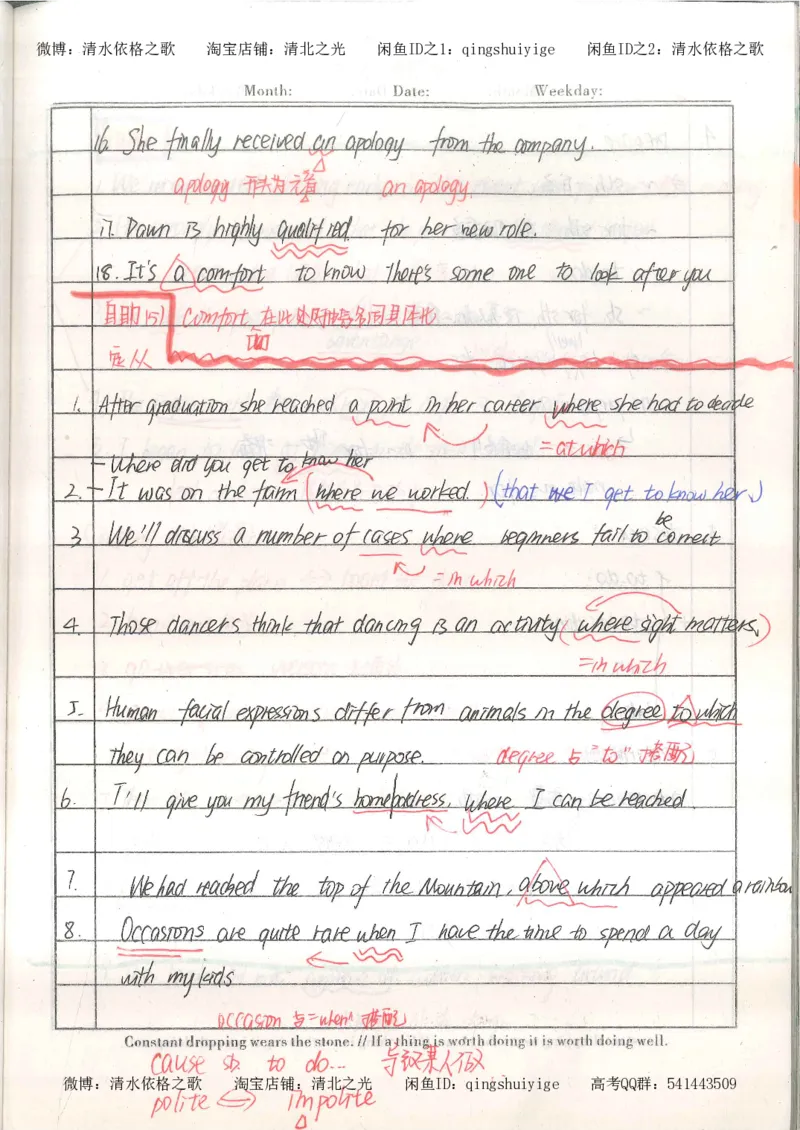 微博：清水依格之歌 淘宝店铺：清北之光 闲鱼ID之1：qingshuiyige 闲鱼ID之2：清水依格之歌
Month: Date: Weekday:
16. She finally received an apology from the company.
apology 形式为元音 an apology.
17. Dawn is highly qualified for her new role.
18. It's a comfort to know there's some one to look after you
自助 comfort 在此处 名词具体化
定从
1. After graduation she reached a point in her career where she had to decide
= at which
- Where did you get to know her
2. - It was on the farm (where we worked.) (that we I get to know her.)
3 We'll discuss a number of cases where beginners fail to be correct
= in which
4. Those dancers think that dancing is an activity (where sight matters.)
= in which
5. Human facial expressions differ from animals in the degree to which
they can be controlled on purpose. degree 与 "to" 搭配
6. I'll give you my friend's home address, where I can be reached.
7. We had reached the top of the Mountain, above which appeared a rainbow
8. Occasions are quite rare when I have the time to spend a day
with my kids
occasion 与 "when" 搭配
Constant dropping wears the stone. // If a thing is worth doing it is worth doing well.
cause sb. to do... 导致某人做
微博：清水依格之歌 淘宝店铺：清北之光 闲鱼ID：qingshuiyige 高考QQ群：541443509
polite ⇔ impolite